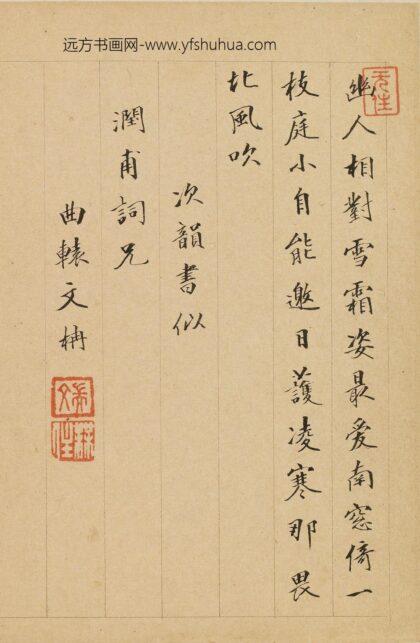 远方书画网-www.yfshuhua.com
幽人相對雪霜姿最爱南窓倚一
枝庭小自能邀日護凌寒那畏
北風吹
次韻書似
潤甫詞兄
曲轅文枏